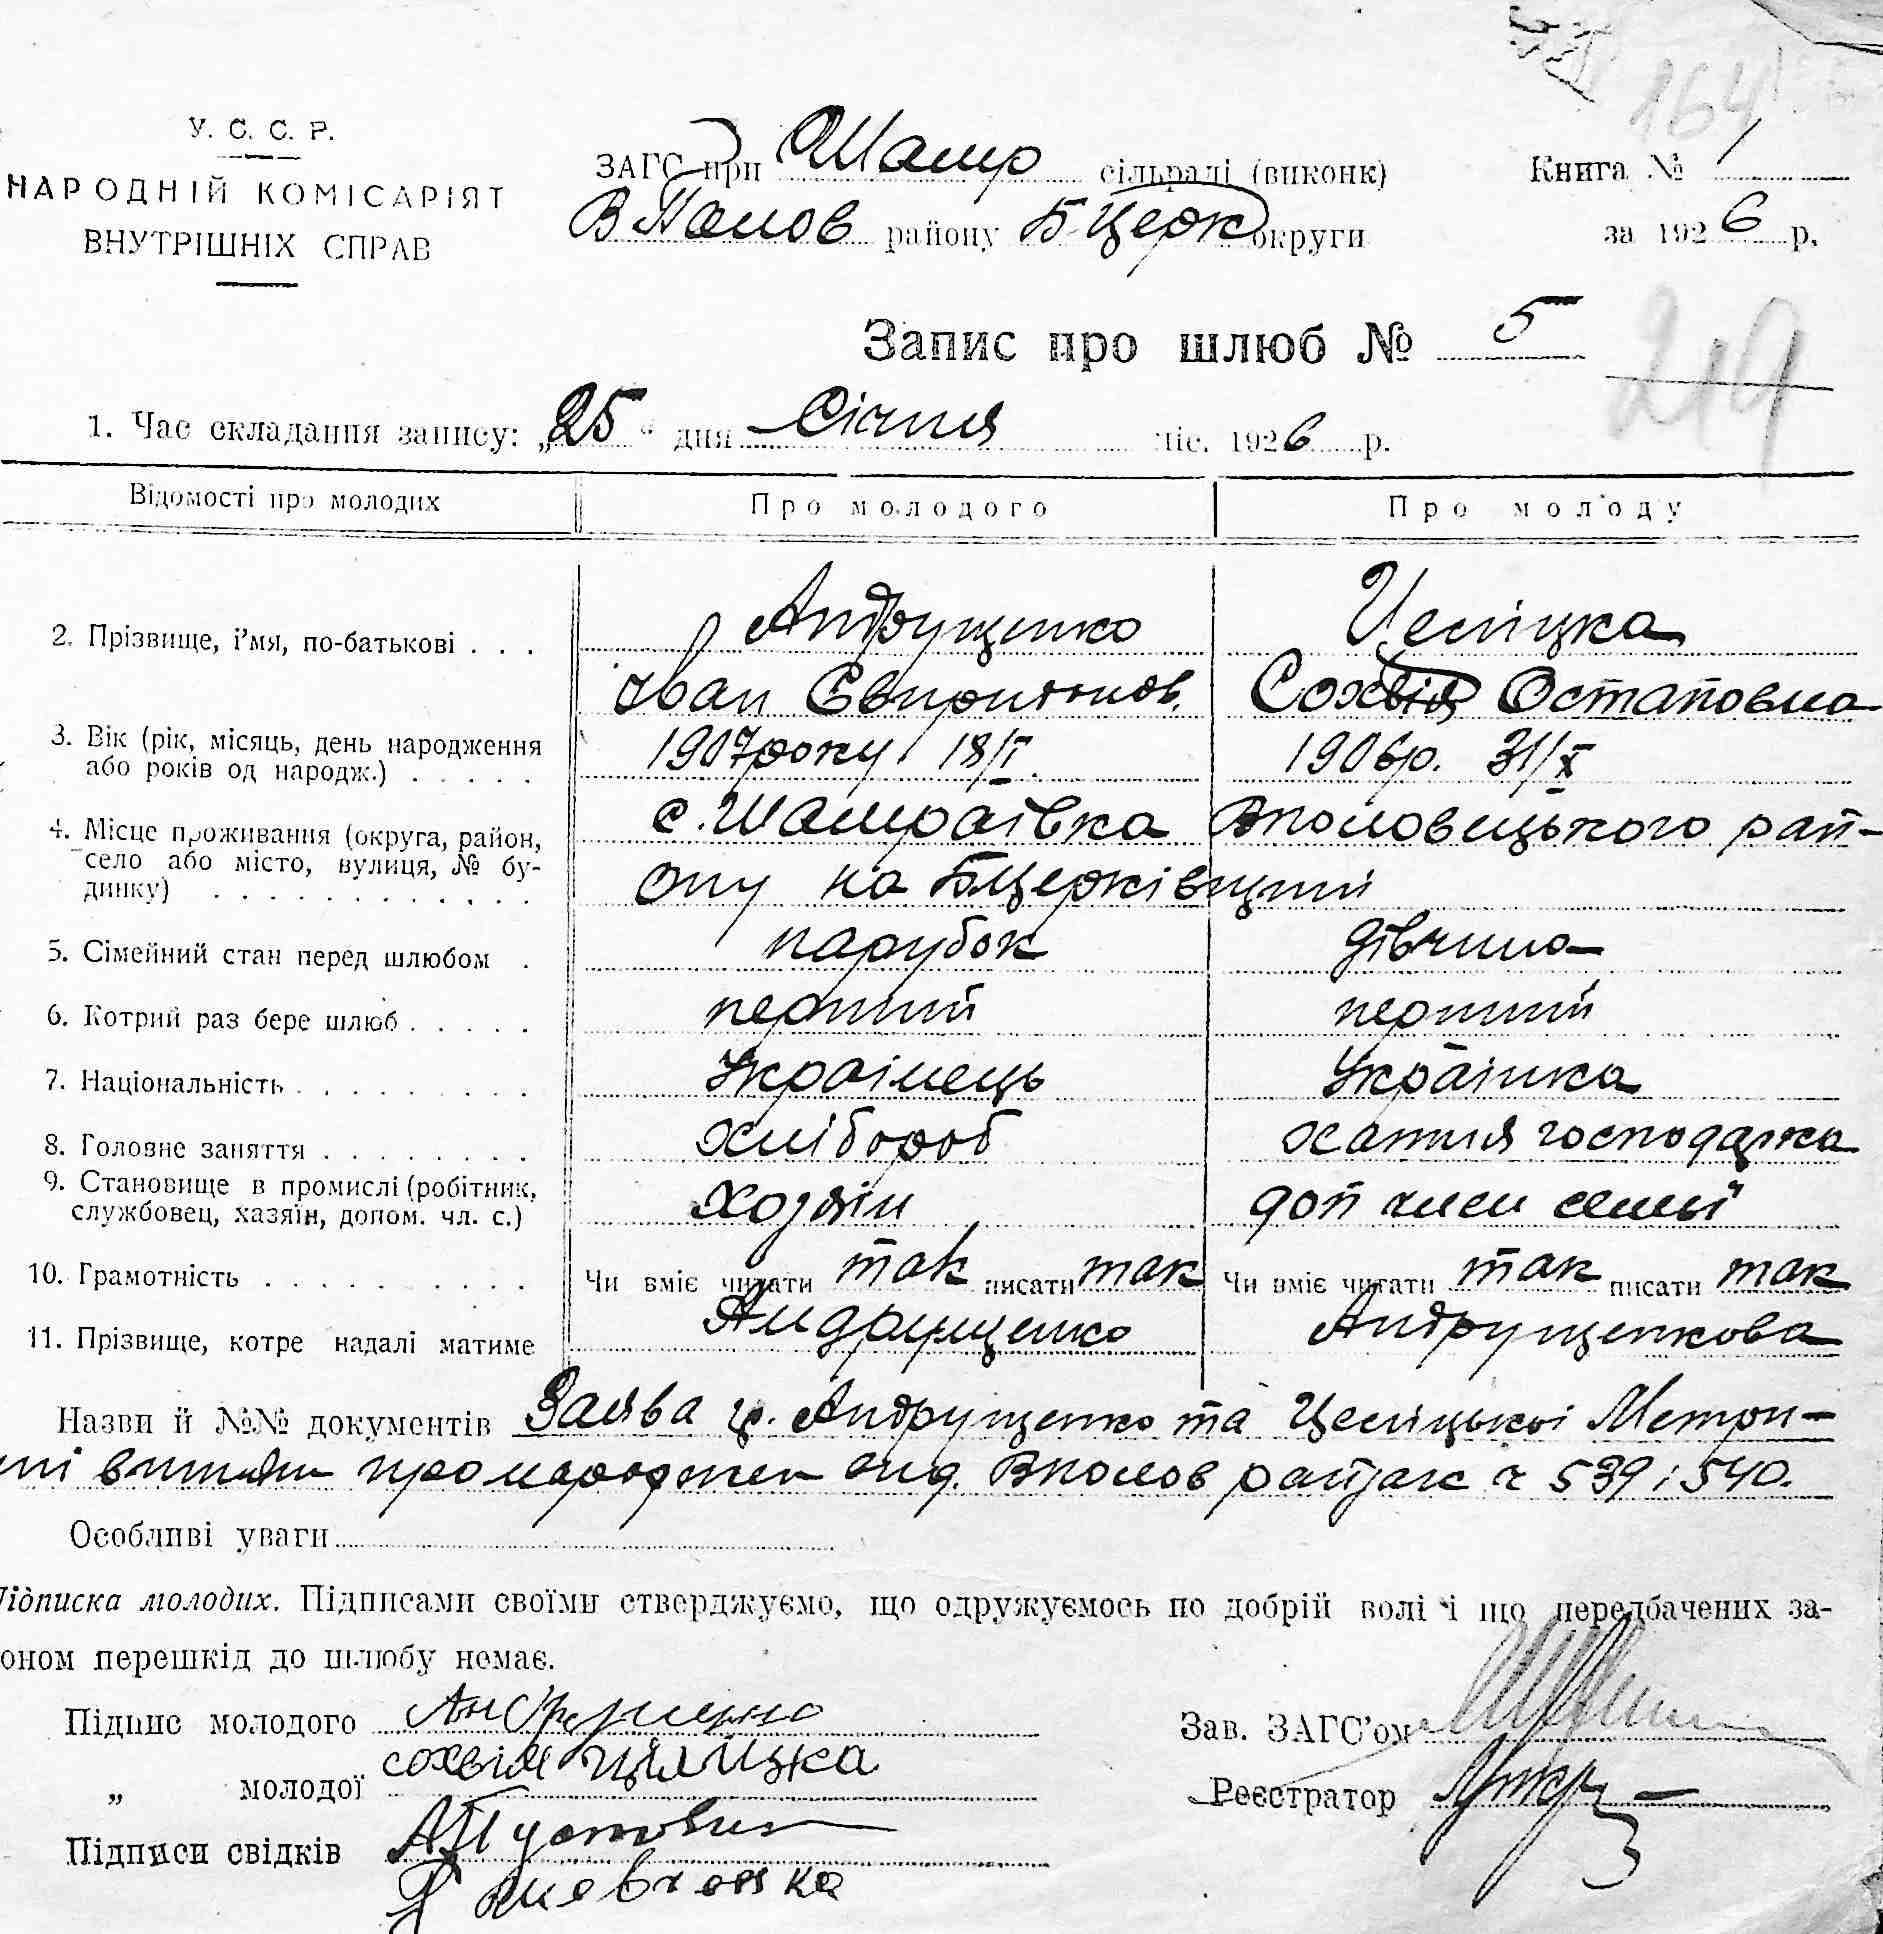 164
У. С. С. Р.
НАРОДНІЙ КОМІСАРІЯТ
ВНУТРІШНІХ СПРАВ
ЗАГС при Шамр сільраді (виконк)
В Полов району Б-Церк округи
Книга № 1
за 1926 р.
Запис про шлюб № 5
219
1. Час складання запису: „25“ дня Січня міс. 1926 р.
Відомості про молодих Про молодого Про молоду
2. Прізвище, і'мя, по-батькові . . . Андрущенко Цесліцка
Іван Сохвія Остаповна
3. Вік (рік, місяць, день народження 1907 року 18/I 1906 р. 31/X
або років од народж.) . . . . .
4. Місце проживання (округа, район, с. Шамраївка Вполовецького рай-
село або місто, вулиця, № бу-
динку) . . . . . . . . . . . . ону на БЦерківщині
5. Сімейний стан перед шлюбом . парубок дівчина
6. Котрий раз бере шлюб . . . . . перший перший
7. Національність . . . . . . . . Українець Українка
8. Головне заняття . . . . . . . . хлібороб хатня господарка
9. Становище в промислі (робітник, хозяїн доп член семьї
службовец, хазяїн, допом. чл. с.)
10. Грамотність . . . . . . . . . . Чи вміє читати так писати так Чи вміє читати так писати так
11. Прізвище, котре надалі матиме Андрущенко Андрущенкова
Назви й №№ документів Заява гр. Андрущенко та Цесліцької Метри-
чні про народжен Вполов ч 539 і 540.
Особливі уваги
Підписка молодих. Підписами своїми стверджуємо, що одружуємось по добрій волі і що передбачених за-
оном перешкід до шлюбу немає.
Підпис молодого Андрущенко
„ молодої сохвія
Зав. ЗАГС'ом
Реєстратор
Підписи свідків